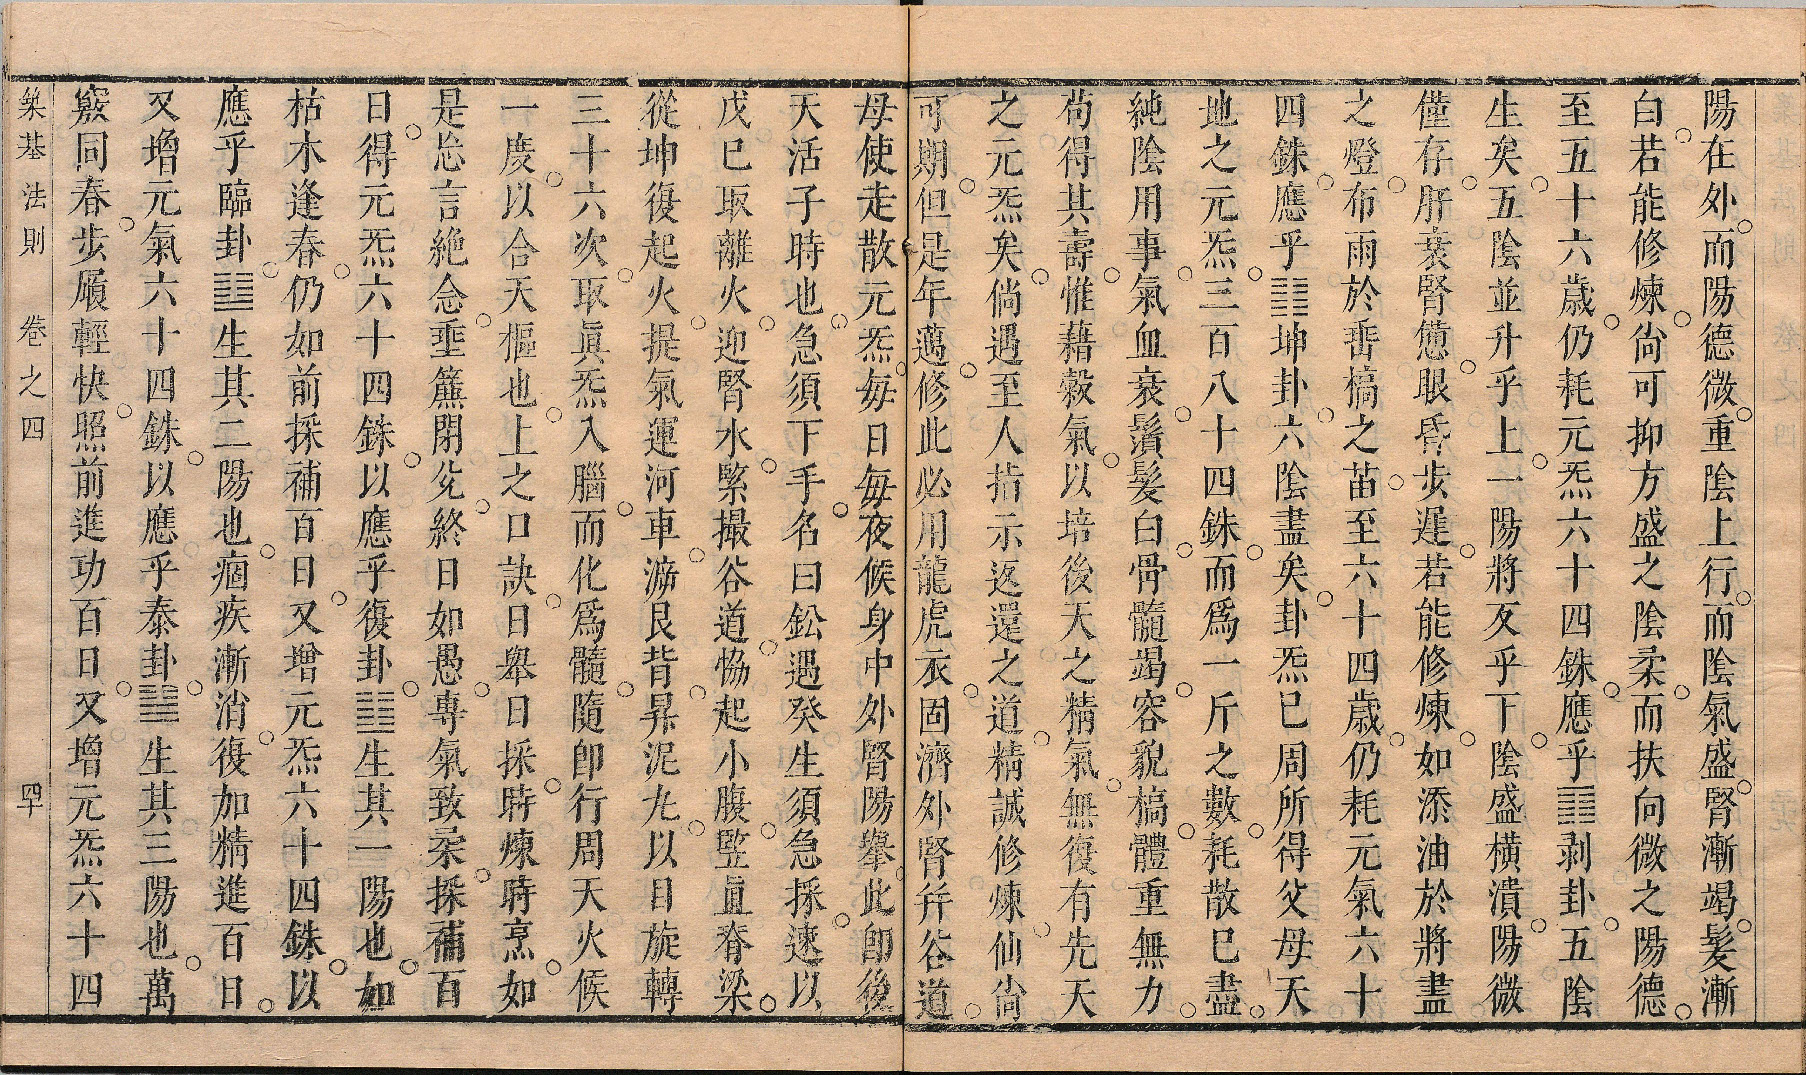 陽在外而陽德微重陰上行而陰氣盛腎漸竭髮漸
白若能修煉尙可抑方盛之陰柔而扶向微之陽德
至五十六歲仍耗元炁六十四銖應乎䷖剥卦五陰
生矣五陰並升乎上一陽將反乎下陰盛橫潰陽微
僅存肝衰腎憊眼昏步遲若能修煉如添油於將盡
之燈布雨於垂槁之苗至六十四歲仍耗元氣六十
四銖應乎䷁坤卦六陰盡矣卦炁已周所得父母天
地之元炁三百八十四銖而爲一斤之數耗散已盡
純陰用事氣血衰鬚髮白骨髓竭容貌槁體重無力
苟得其壽惟藉穀氣以培後天之精氣無復有先天
之元炁矣倘遇至人指示返還之道精誠修煉仙尙
可期但是年邁修此必用龍虎衣固濟外腎幷谷道
母使走散元炁每日每夜候身中外腎陽舉此卽後
天活子時也急須下手名曰鉛遇癸生須急採速以
戊巳取離火迎腎水緊撮谷道恊起小腹竪直脊梁
從坤復起火提氣運河車泝艮背昇泥丸以目旋轉
三十六次取眞炁入腦而化爲髓隨卽行周天火候
一度以合天樞也上之口訣日舉日採時煉時烹如
是忘言絶念垂簾閉兌終日如愚專氣致柔採補百
日得元炁六十四銖以應乎復卦䷗生其一陽也如
枯木逢春仍如前採補百日又增元炁六十四銖以
應乎臨卦䷒生其二陽也痼疾漸消復加精進百日
又增元氣六十四銖以應乎泰卦䷊生其三陽也萬
竅同春步履輕快照前進功百日又增元炁六十四
築基法則　卷之四　四十